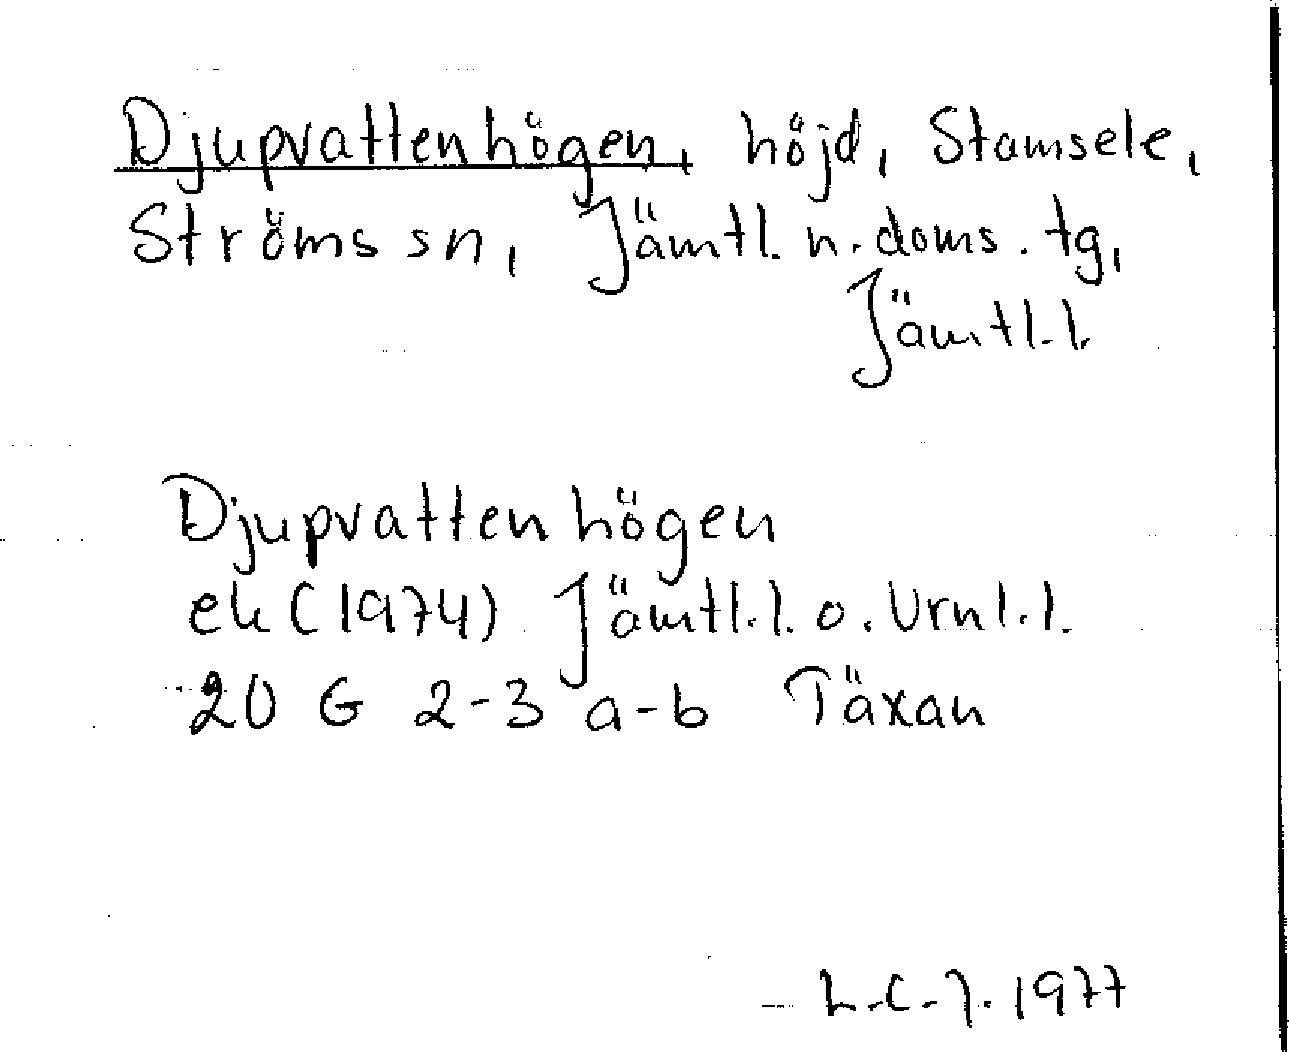 Djupvattenhögen, höjd, Stamsele,
Ströms sn, Jämtl. n. doms. tg,
Jämtl. l.
Djupvattenhögen
ek (1974) Jämtl. l. o. Urnl. l.
20 G 2-3 a-b Täxan
L.C.J. 1977